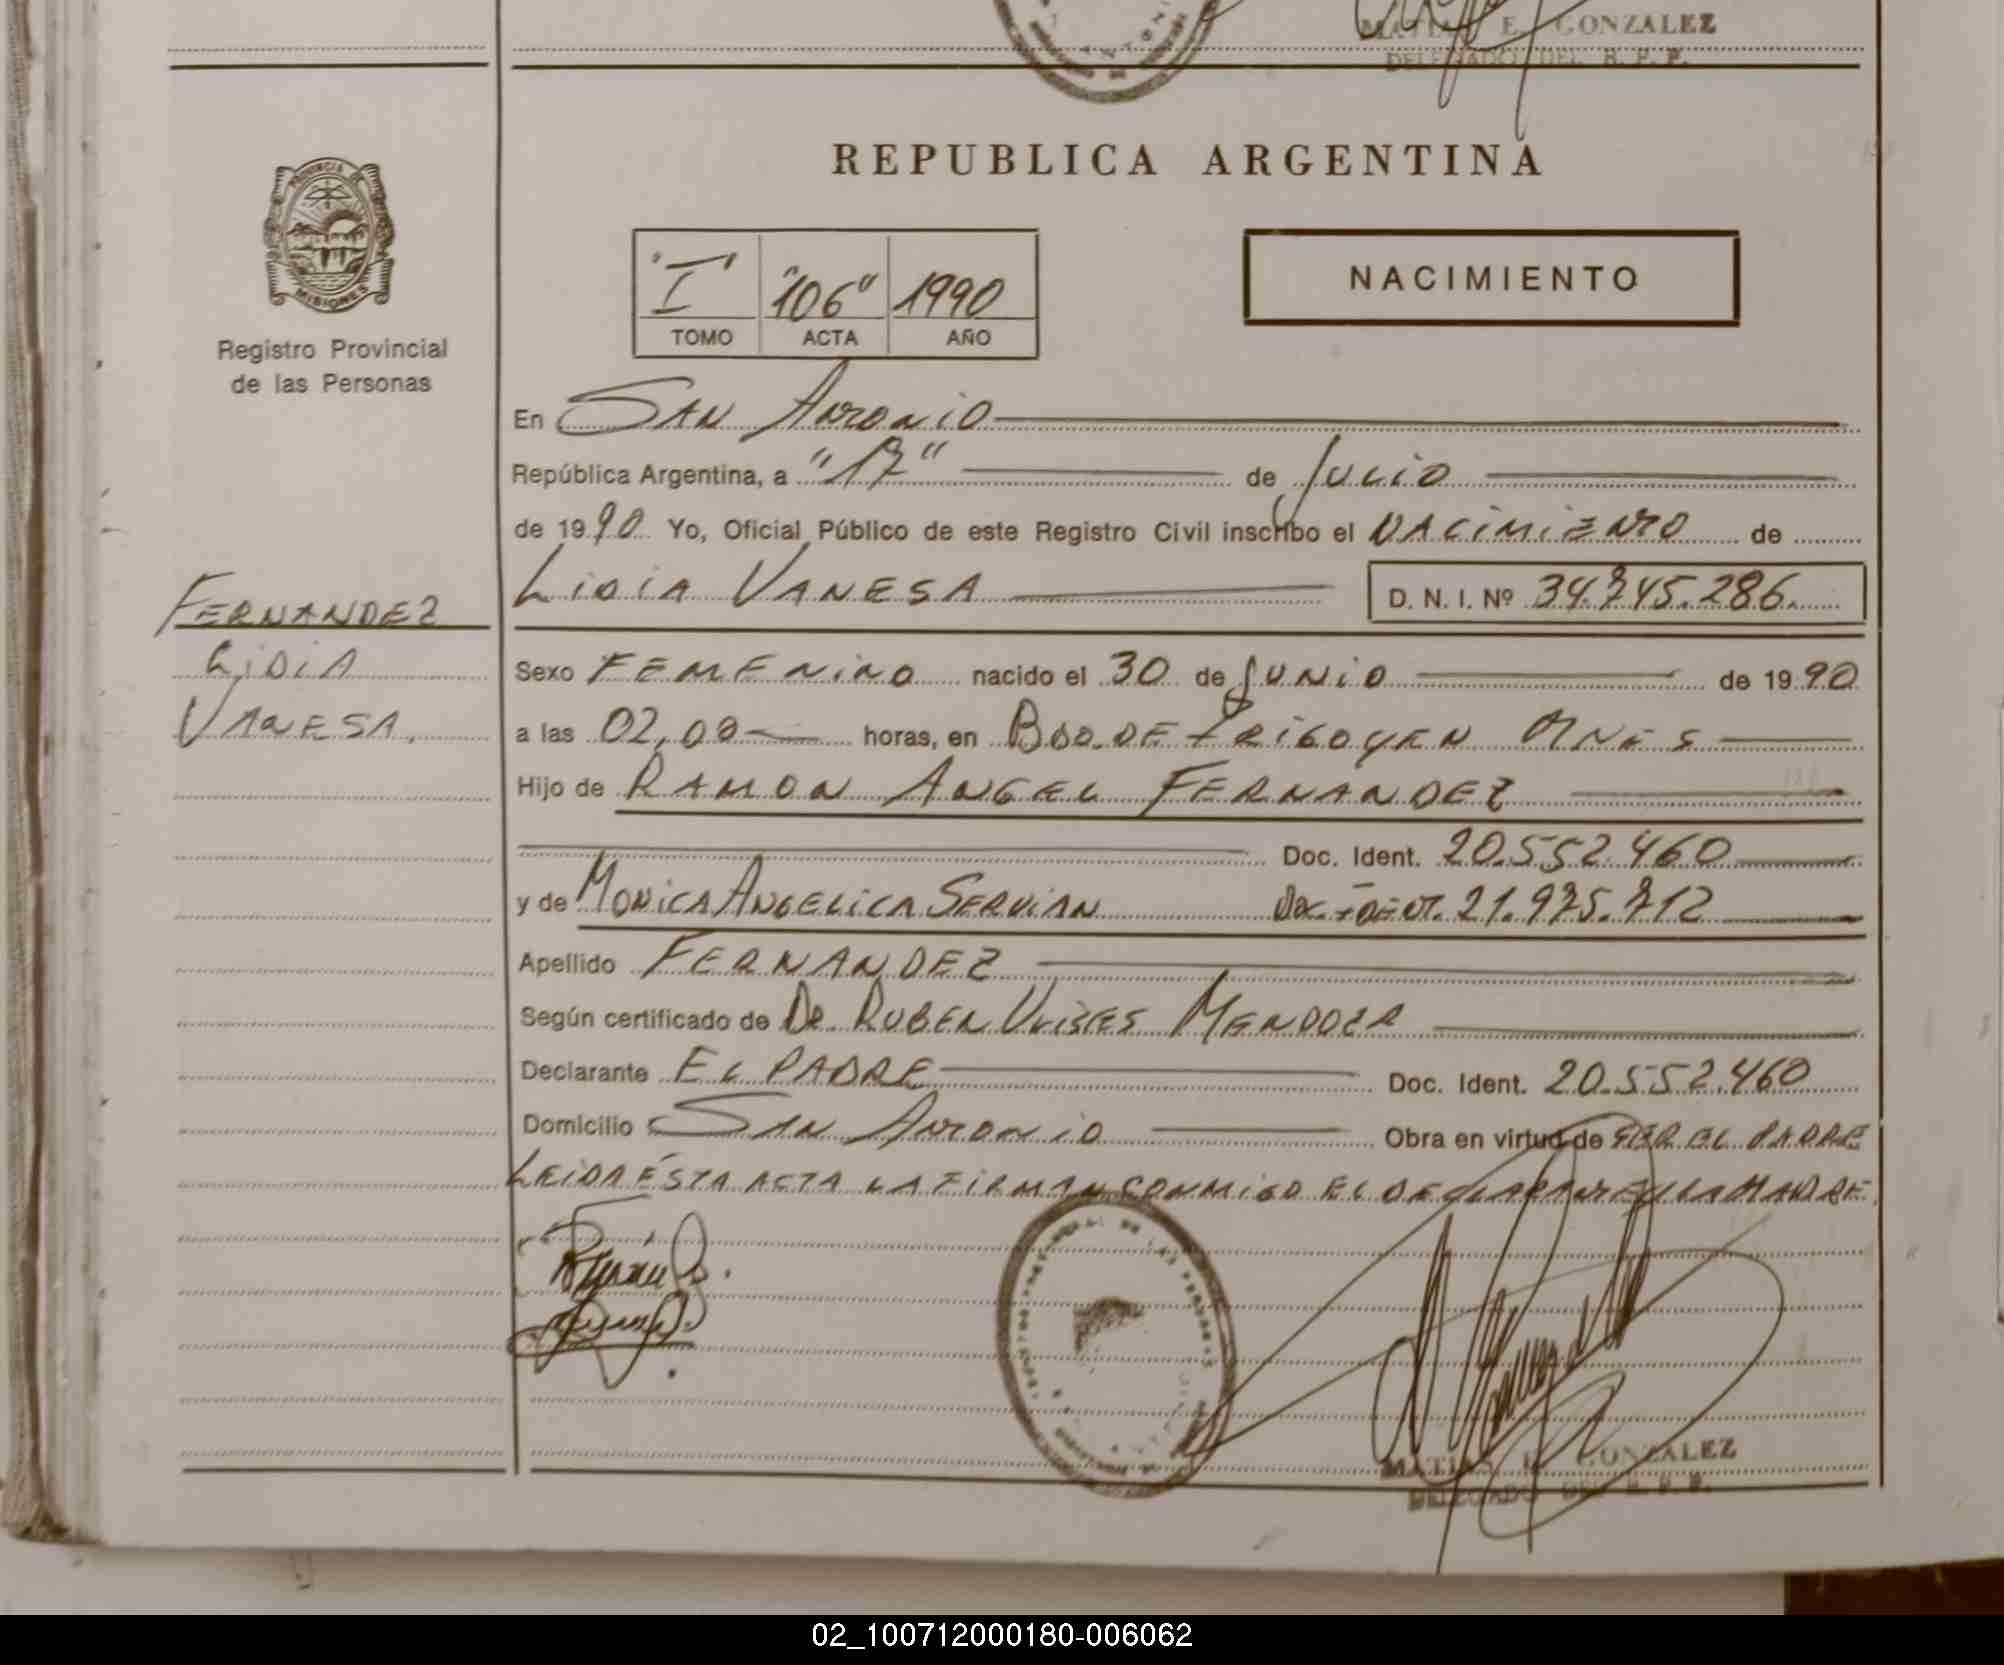 MATIAS E. GONZALEZ
DELEGADO DEL R. P. P.
REPUBLICA ARGENTINA
PROVINCIA DE
MISIONES
Registro Provincial
de las Personas
"I" "106" 1990
TOMO ACTA AÑO
NACIMIENTO
En SAN ANTONIO
República Argentina, a "17" de JULIO
de 1990 Yo, Oficial Público de este Registro Civil inscribo el NACIMIENTO de
LIDIA VANESA D. N. I. Nº 34.745.286.
FERNANDEZ
LIDIA
VANESA.
Sexo FEMENINO nacido el 30 de JUNIO de 1990
a las 02,00 horas, en BDO. DE IRIGOYEN MNES
Hijo de RAMON ANGEL FERNANDEZ
Doc. Ident. 20.552.460
y de MONICA ANGELICA SERVIAN Doc. IDENT. 21.975.712
Apellido FERNANDEZ
Según certificado de DR. RUBEN ULISES MENDOZA
Declarante EL PADRE Doc. Ident. 20.552.460
Domicilio SAN ANTONIO Obra en virtud de SER EL PADRE
LEIDA ÉSTA ACTA LA FIRMAN CONMIGO EL DECLARANTE Y LA MADRE.
MATIAS E. GONZALEZ
DELEGADO DEL R. P. P.
02_100712000180-006062